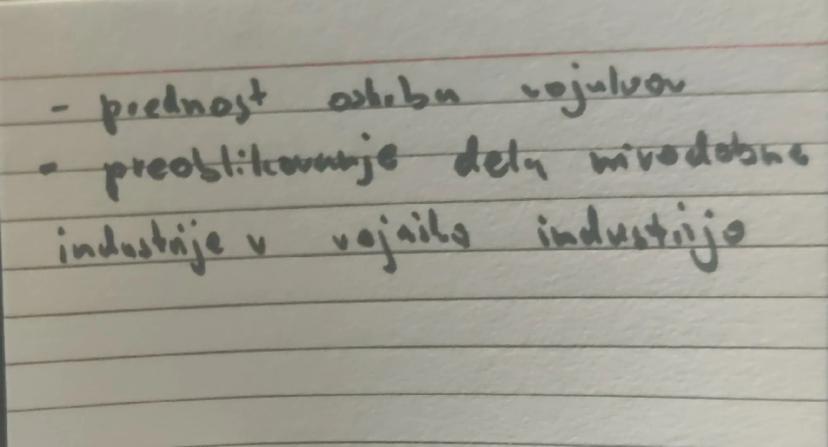 - prednost oskrbu vojakov
- preoblikovanje dela mirodobne
industrije v vojaško industrijo